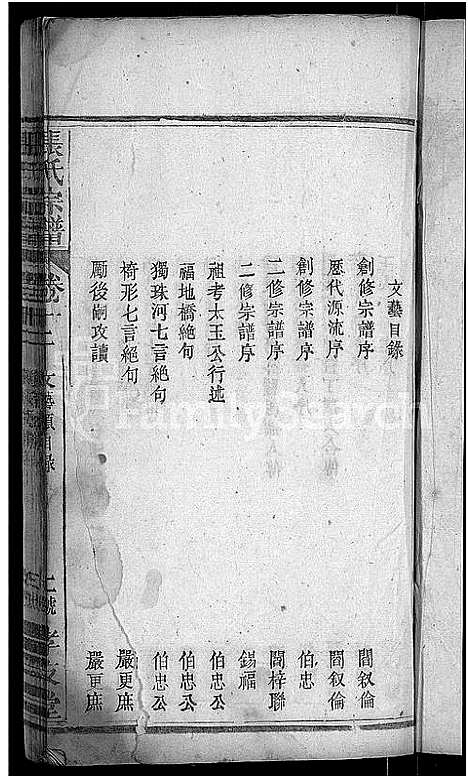 文藝目錄
創修宗譜序 閻叙倫
歷代源流序 閻叙倫
創修宗譜序 伯忠
二修宗譜序 閻梓聯
二修宗譜序 錫福
祖考太玉公行述 伯忠公
福地橋絕句 伯忠公
獨珠河七言絕句 伯忠公
椅形七言絕句 嚴更庶
勵後嗣攻讀 嚴更庶
張氏宗譜 卷十二 文藝類目錄 一 二號 孝友堂
FamilySearch